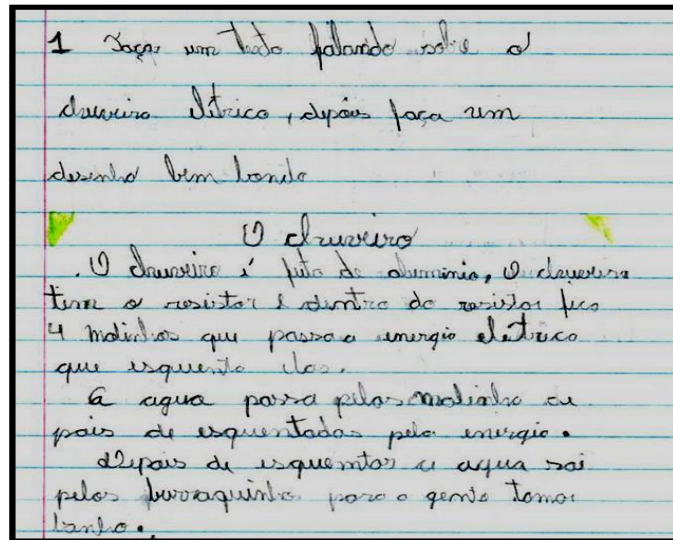 1 Faça um texto falando sobre o
chuveiro elitrico, depois faça um
desenho bem bonito
O chuveiro
. O chuveiro é feito de aluminio, O chuveiro
tem o resistor e dentro do resistor fica
4 molinhas que passa a energia eletrica
que esquenta elas.
a agua passa pelas molinha de
pois de esquentadas pela energia.
depois de esquemtar a agua sai
pelos burraquinho para a gente tomar
banho.